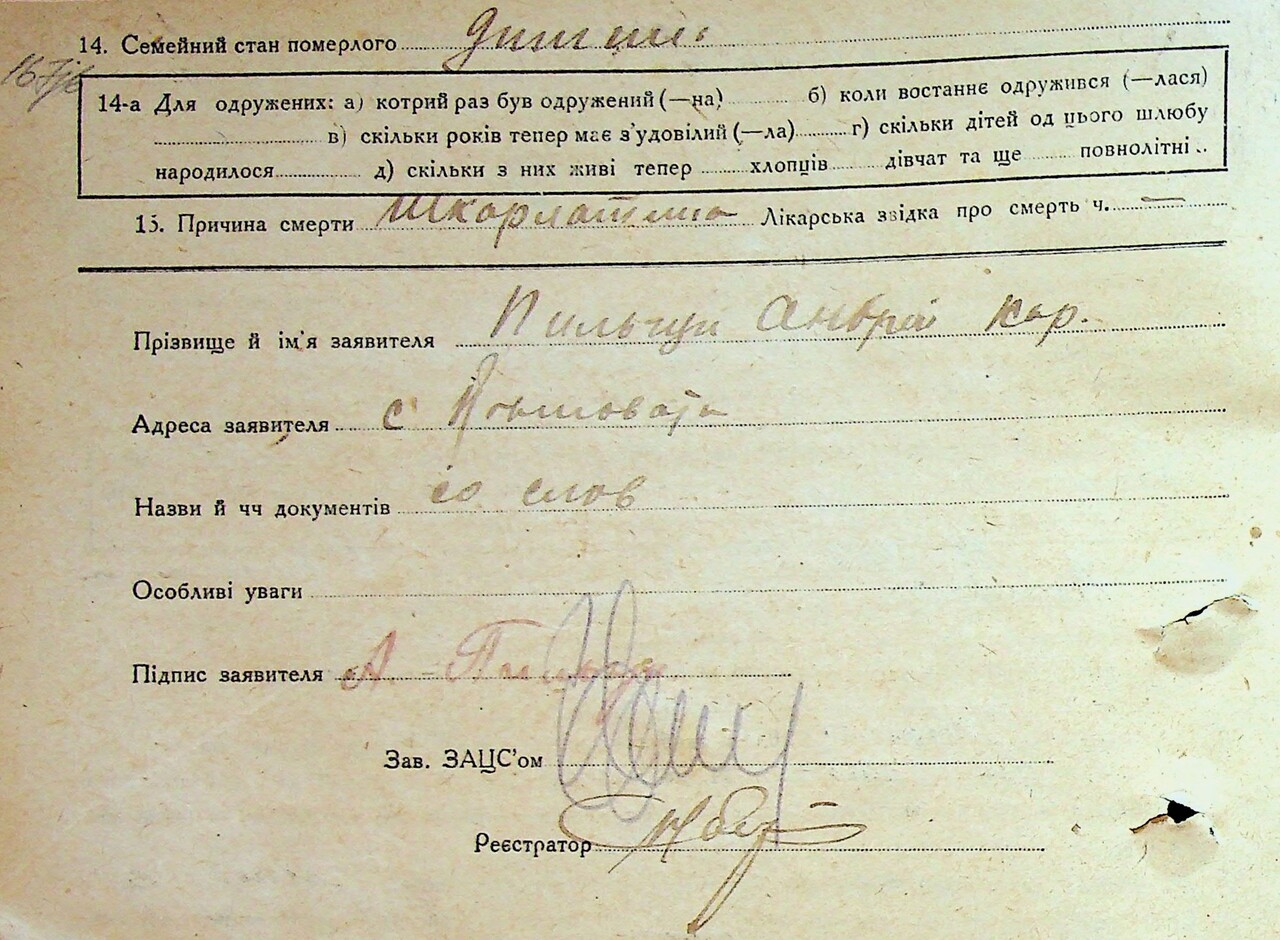 14. Семейний стан померлого
14-а Для одружених: а) котрий раз був одружений (—на) ........ б) коли востаннє одружився (—лася)
................ в) скільки років тепер має з'удовілий (—ла) ........ г) скільки дітей од цього шлюбу
народилося ............ д) скільки з них живі тепер ........ хлопців ...... дівчат та ще ...... повнолітні ..
15. Причина смерти Шкарлатина Лікарська звідка про смерть ч. —
Прізвище й ім'я заявителя Пильгуй Андрій Кар.
Адреса заявителя с
Назви й чч документів со слов
Особливі уваги
Підпис заявителя А.
Зав. ЗАЦС'ом
Реєстратор